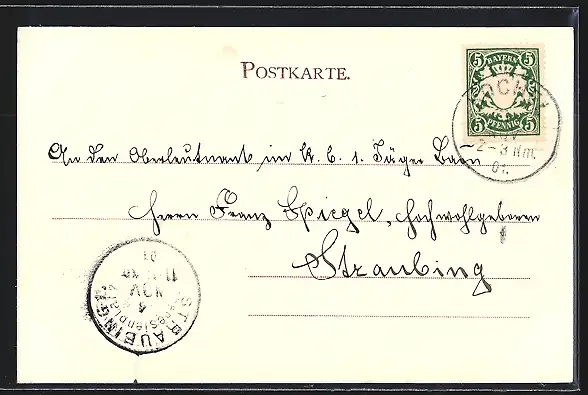 POSTKARTE.
5 BAYERN 5
5 PFENNIG 5
2-3 Nm.
01.
An den Oberleutnant im K. B. 1. Jäger Baon
Herrn Franz Spiegel, Hochwohlgeboren
Straubing
STRAUBING
4
NOV
01